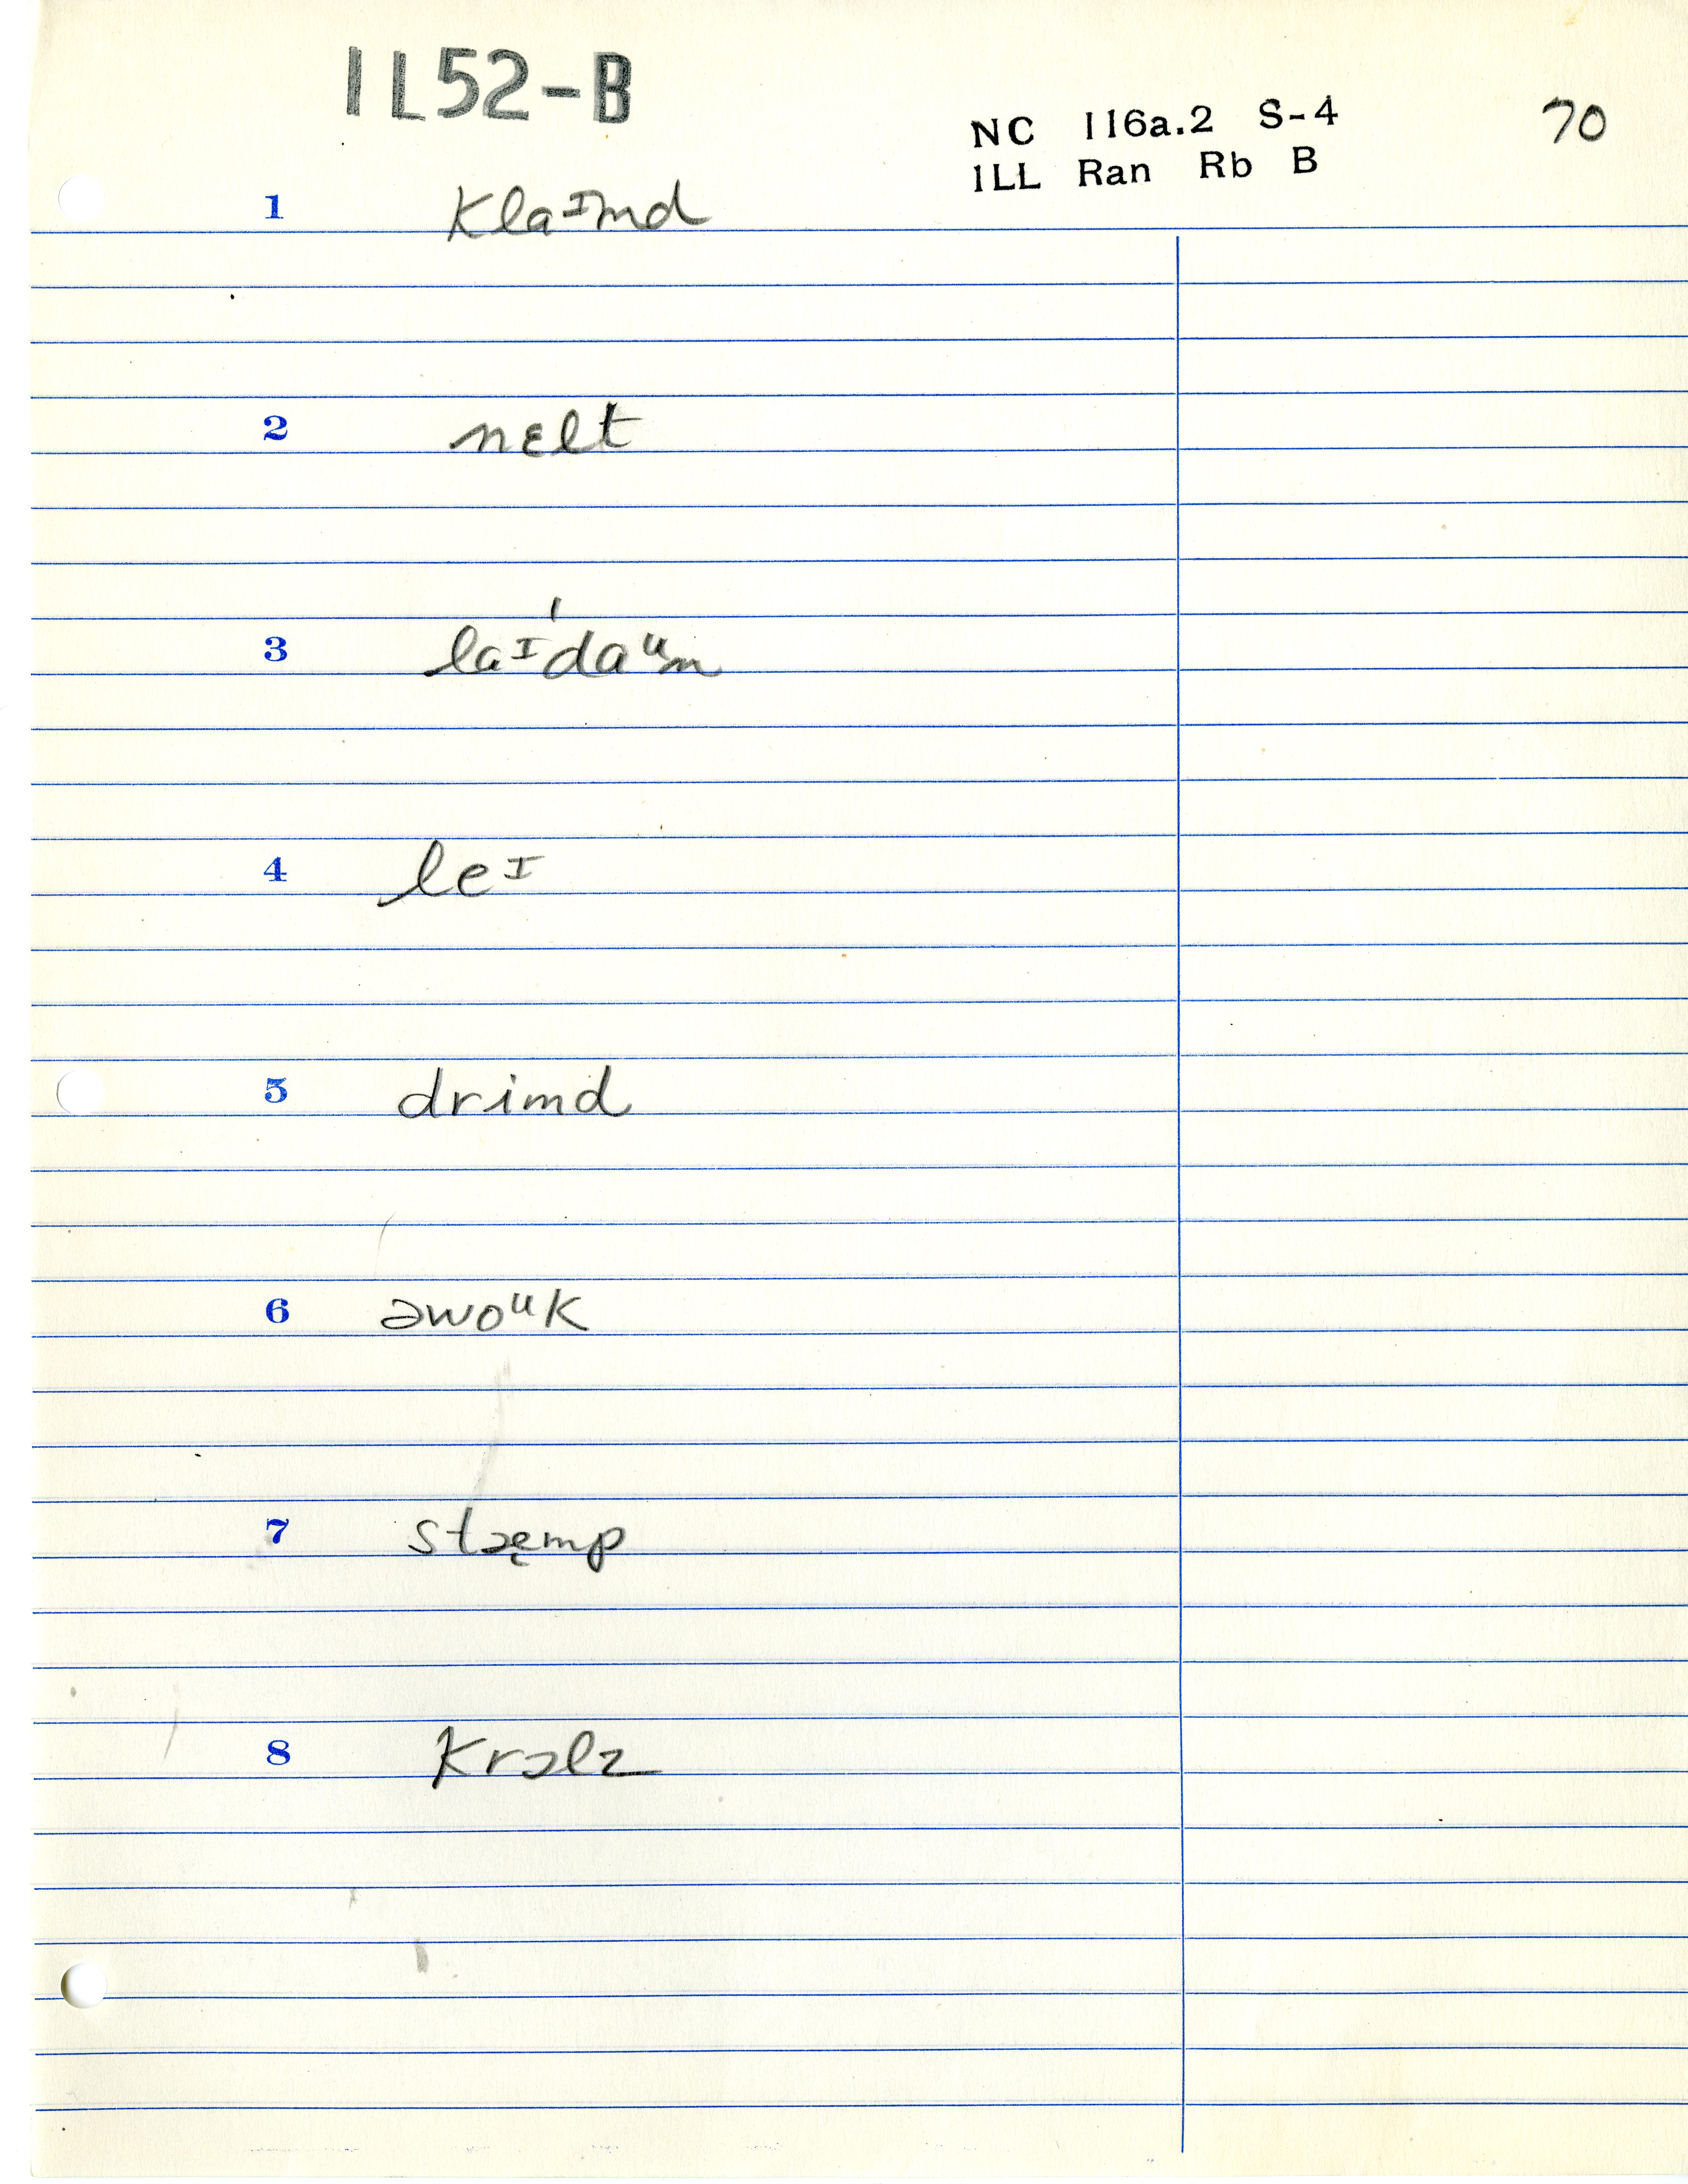 1L52-B
NC 116a.2 S-4 70
1LL Ran Rb B
1 klaᴵmd
2 nɛlt
3 laᴵˈdaᵘn
4 leᴵ
5 drimd
6 əwoᵘk
7 stæ̨mp
8 krɔlz